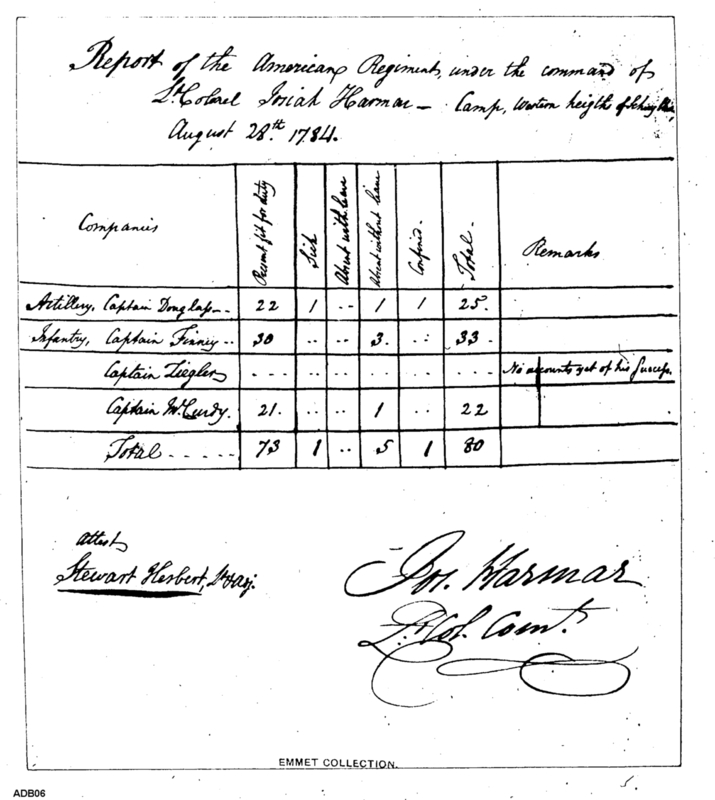 Report of the American Regiment, under the command of
Lt. Colonel Josiah Harmar — Camp, Western heights of Schuylkill,
August 28th. 1784.
Companies Present fit for duty Sick Absent with leave Absent without leave Confined. Total. Remarks
Artillery, Captain Douglass -- 22 1 .. 1 1 25.
Infantry, Captain Finney -- 30 .. .. 3. .. 33.
Captain Ziegler .... .. .. .. .. ... No accounts yet of his Success.
Captain McCurdy. 21. .. .. 1 .. 22
Total ----- 73 1 .. 5 1 80
attest
Stewart Herbert, Lt & Adj.
Jos. Harmar
Lt. Col. Comt.
EMMET COLLECTION.
ADB06
5.